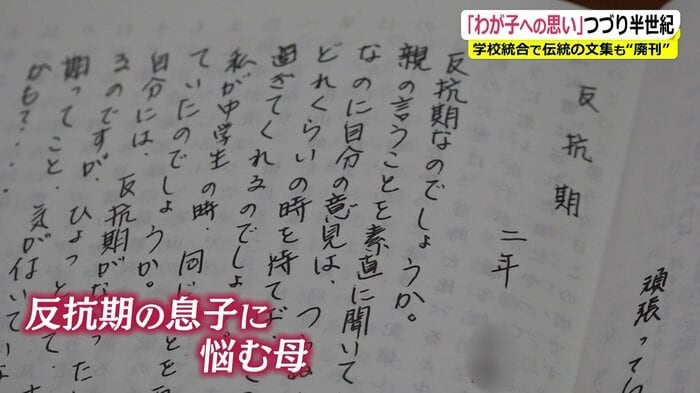 「わが子への思い」つづり半世紀
学校統合で伝統の文集も“廃刊”
頑張ってい
反抗期
二年
反抗期なのでしょうか。
親の言うことを素直に聞いて
なのに自分の意見は、つ
どれくらいの時を待てば、
過ぎてくれるのでしょ
私が中学生の時、同じ とを
ていたのでしょうか。
自分には、反抗期がな った
るのですが、ひょっと
期ってこと、気が付いていな
かも?・・・
反抗期の息子に
悩む母